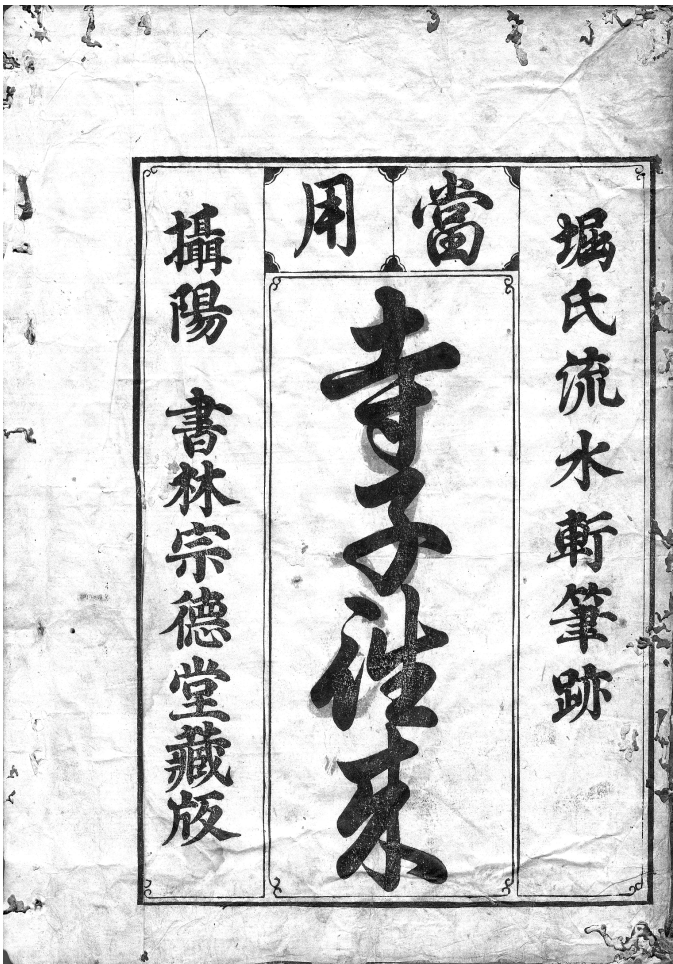 堀氏流水軒筆跡
當用
寺子往来
攝陽 書林宗德堂藏版